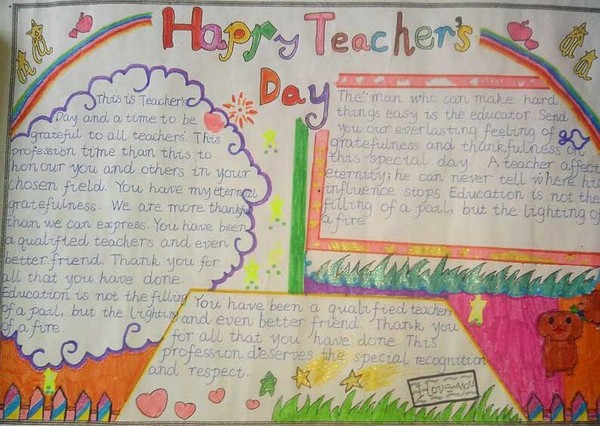 Happy Teacher's
Day
This is Teacher's
Day and a time to be
grateful to all teachers This
profession time than this to
honour you and others in your
chosen field. You have my eternal
gratefulness. We are more thankful
than we can express. You have been
a qualified teachers and even
better friend. Thank you for
all that you have done
Education is not the filling
of a pail, but the lighting
of a fire
The man who can make hard
things easy is the educator. Send
you our everlasting feeling of
gratefulness and thankfulness on
this special day A teacher affect
eternity; he can never tell where his
influence stops. Education is not the
filling of a pail, but the lighting of
a fire
You have been a qualified teachers
and even better friend. Thank you
for all that you have done This
profession deserves the special recognition
and respect.
I love you